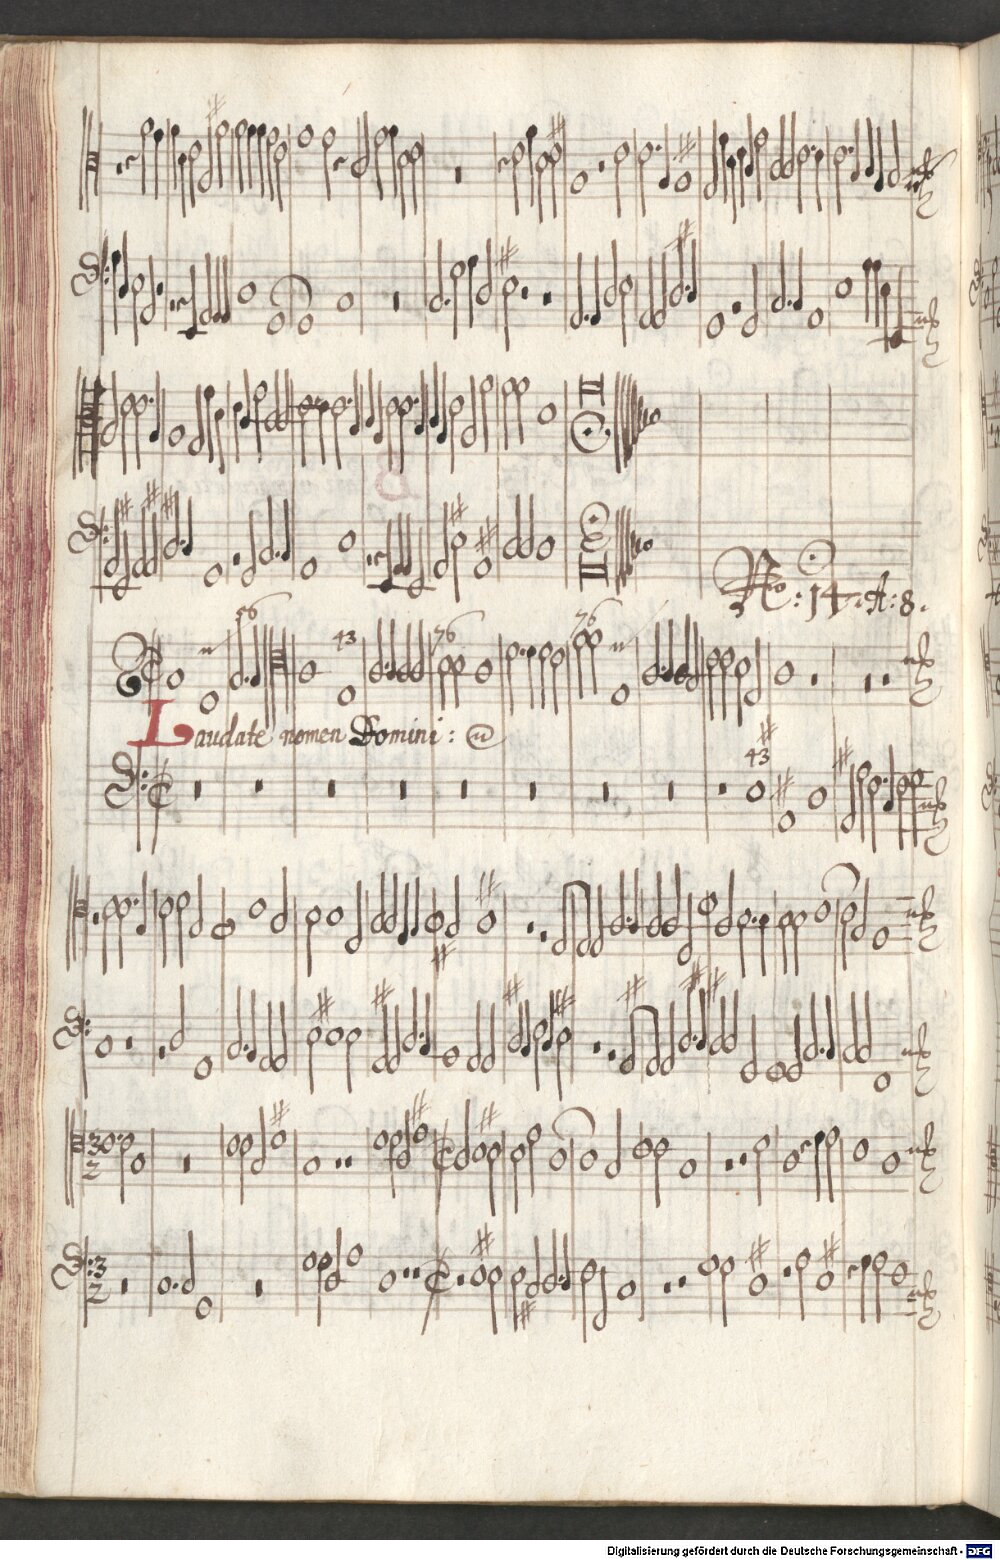 No: 14. A: 8.
56 43 76 76
Laudate nomen Domini:
43
3
2
3
2
Digitalisierung gefördert durch die Deutsche Forschungsgemeinschaft - DFG